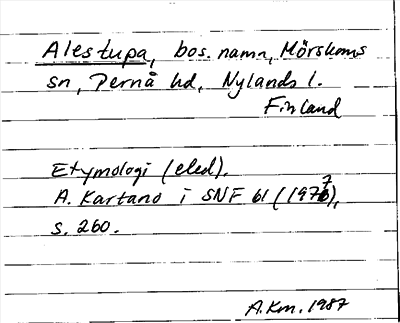 Alestupa, bos. namn, Mörskoms
sn, Pernå hd, Nylands l.
Finland
Etymologi (eled).
A. Kartano i SNF 61 (1977),
s. 260.
A.Km. 1987